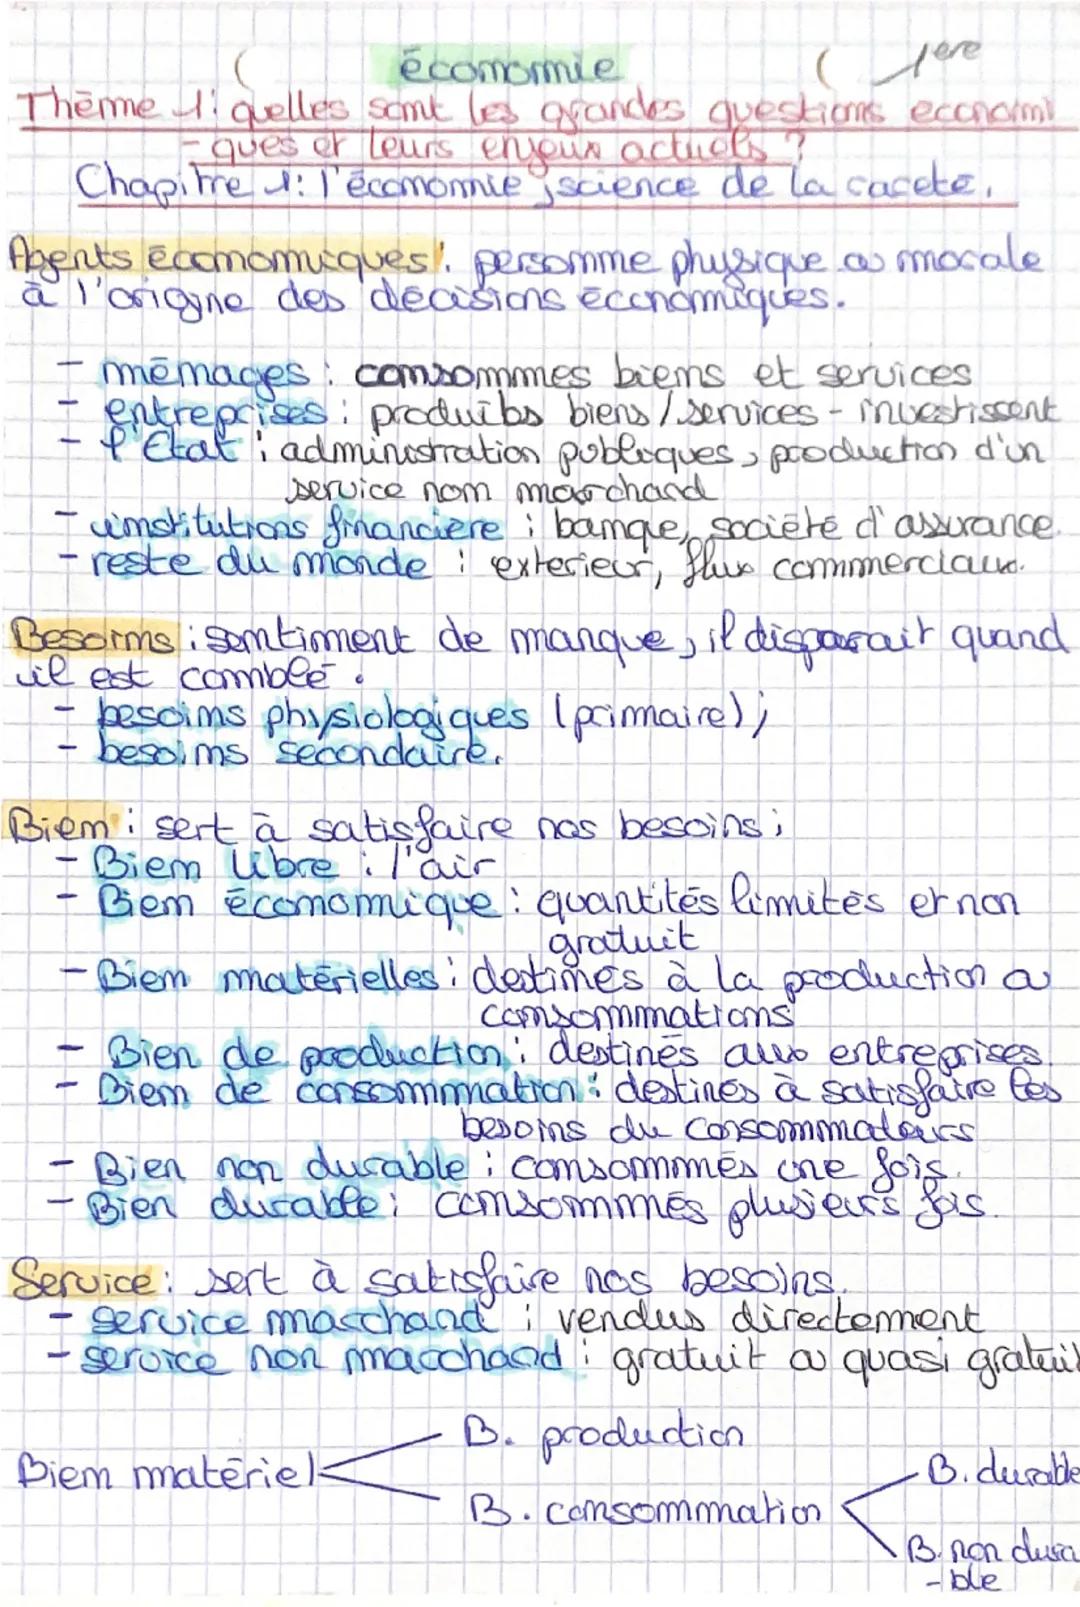 économie
1ere
Thème 1: quelles sont les grandes questions economi
-ques et leurs enjeux actuels ?
Chapitre 1: l'économie, science de la rareté.
Agents économiques: personne physique ou morale
à l'origyne des décisions économiques.
- ménages : consommes biens et services
- entreprises : produibs biens / services - investissent
- l'Etat : administration publiques, production d'un
service non marchand
- institutions financière : banque, société d'assurance.
- reste du monde : exterieur, flux commerciaux.
Besoins : sentiment de manque, il disparait quand
il est comblé.
- besoins physiologiques (primaire);
- besoins secondaire.
Bien : sert à satisfaire nos besoins ;
- Bien libre : l'air
- Bien économique : quantités limités et non
gratuit
- Bien matérielles : destinés à la production ou
consommations
- Bien de production : destinés aux entreprises.
- Bien de consommation : destinés à satisfaire les
besoins du consommateurs
- Bien non durable : consommés une fois.
- Bien durable : consommés plusieurs fois.
Service : sert à satisfaire nos besoins.
- service marchand : vendus directement
- service non marchand : gratuit ou quasi gratuit
B. production
Bien matériel
B. durable
B. consommation
B. non dura
-ble